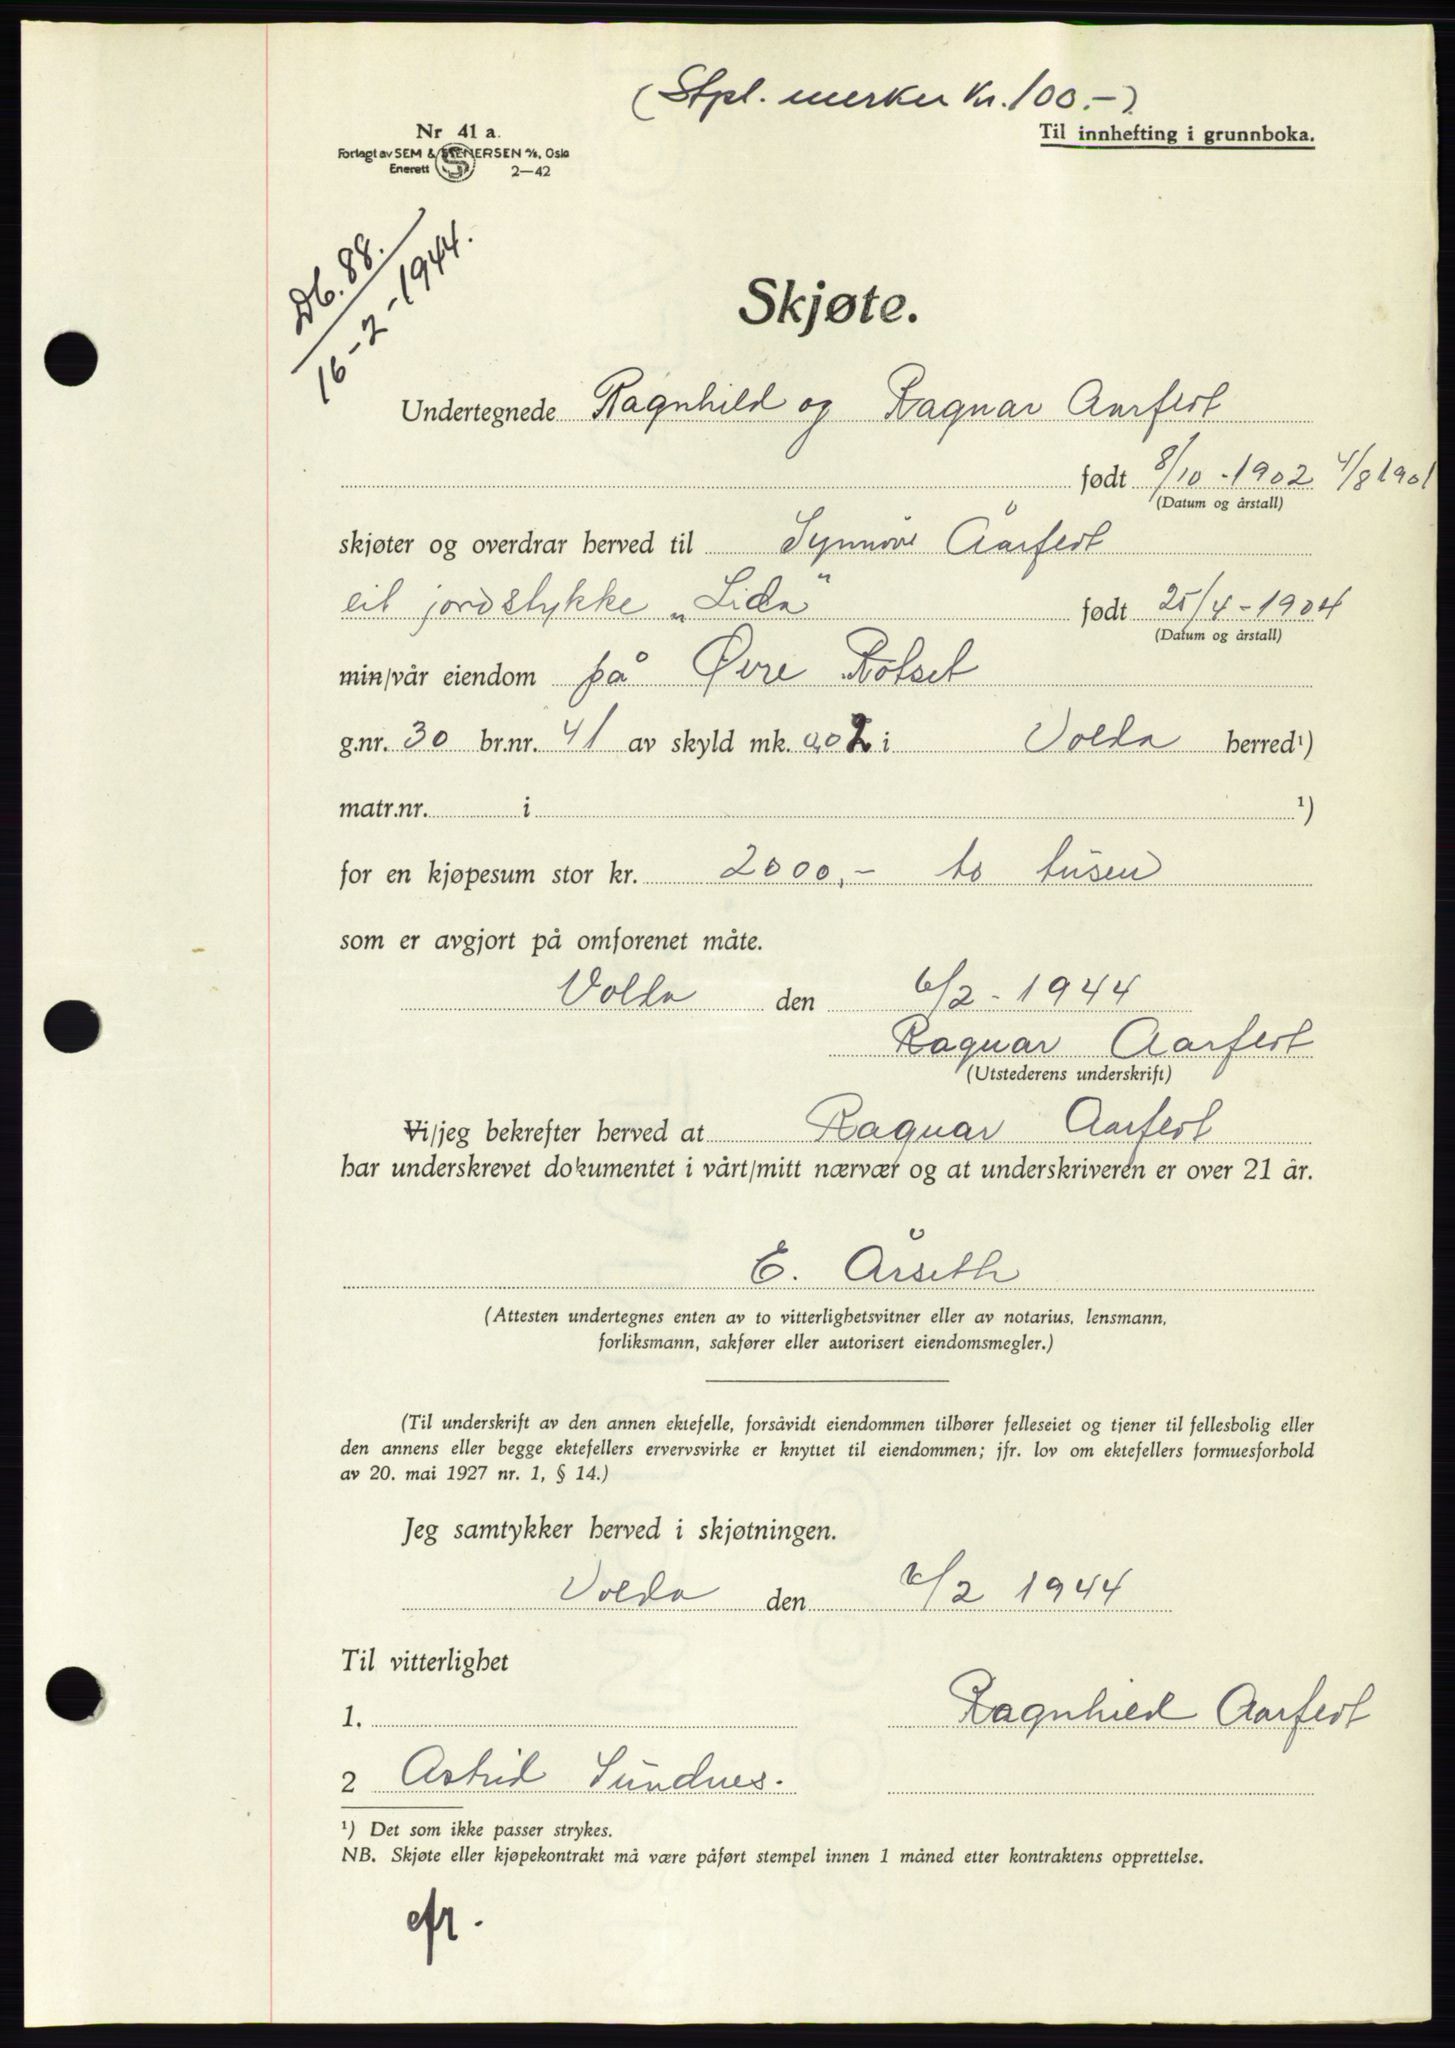 (Stpl. merker Kr. 100.-)
Nr 41 a.
Til innhefting i grunnboka.
Forlagt av SEM & STENERSEN A/S, Oslo
Enerett 2—42
Db. 88.
16-2-1944.
Skjøte.
Undertegnede Ragnhild og Ragnar Aarflot
født 8/10 - 1902 4/8 1901
(Datum og årstall)
skjøter og overdrar herved til Synnøve Aarflot
eit jordstykke „Lida" født 25/4 - 1904
(Datum og årstall)
min/vår eiendom på Øvre Rotset
g.nr. 30 br.nr. 41 av skyld mk. 0,02 i Volda herred¹)
matr.nr. i ¹)
for en kjøpesum stor kr. 2000,- to tusen
som er avgjort på omforenet måte.
Volda den 6/2 - 1944
Ragnar Aarflot
(Utstederens underskrift)
Vi/jeg bekrefter herved at Ragnar Aarflot
har underskrevet dokumentet i vårt/mitt nærvær og at underskriveren er over 21 år.
E. Årseth
(Attesten undertegnes enten av to vitterlighetsvitner eller av notarius, lensmann,
forliksmann, sakfører eller autorisert eiendomsmegler.)
(Til underskrift av den annen ektefelle, forsåvidt eiendommen tilhører felleseiet og tjener til fellesbolig eller
den annens eller begge ektefellers ervervsvirke er knyttet til eiendommen; jfr. lov om ektefellers formuesforhold
av 20. mai 1927 nr. 1, § 14.)
Jeg samtykker herved i skjøtningen.
Volda den 6/2 1944
Til vitterlighet
1. Ragnhild Aarflot
2 Astrid Sundnes.
¹) Det som ikke passer strykes.
NB. Skjøte eller kjøpekontrakt må være påført stempel innen 1 måned etter kontraktens opprettelse.